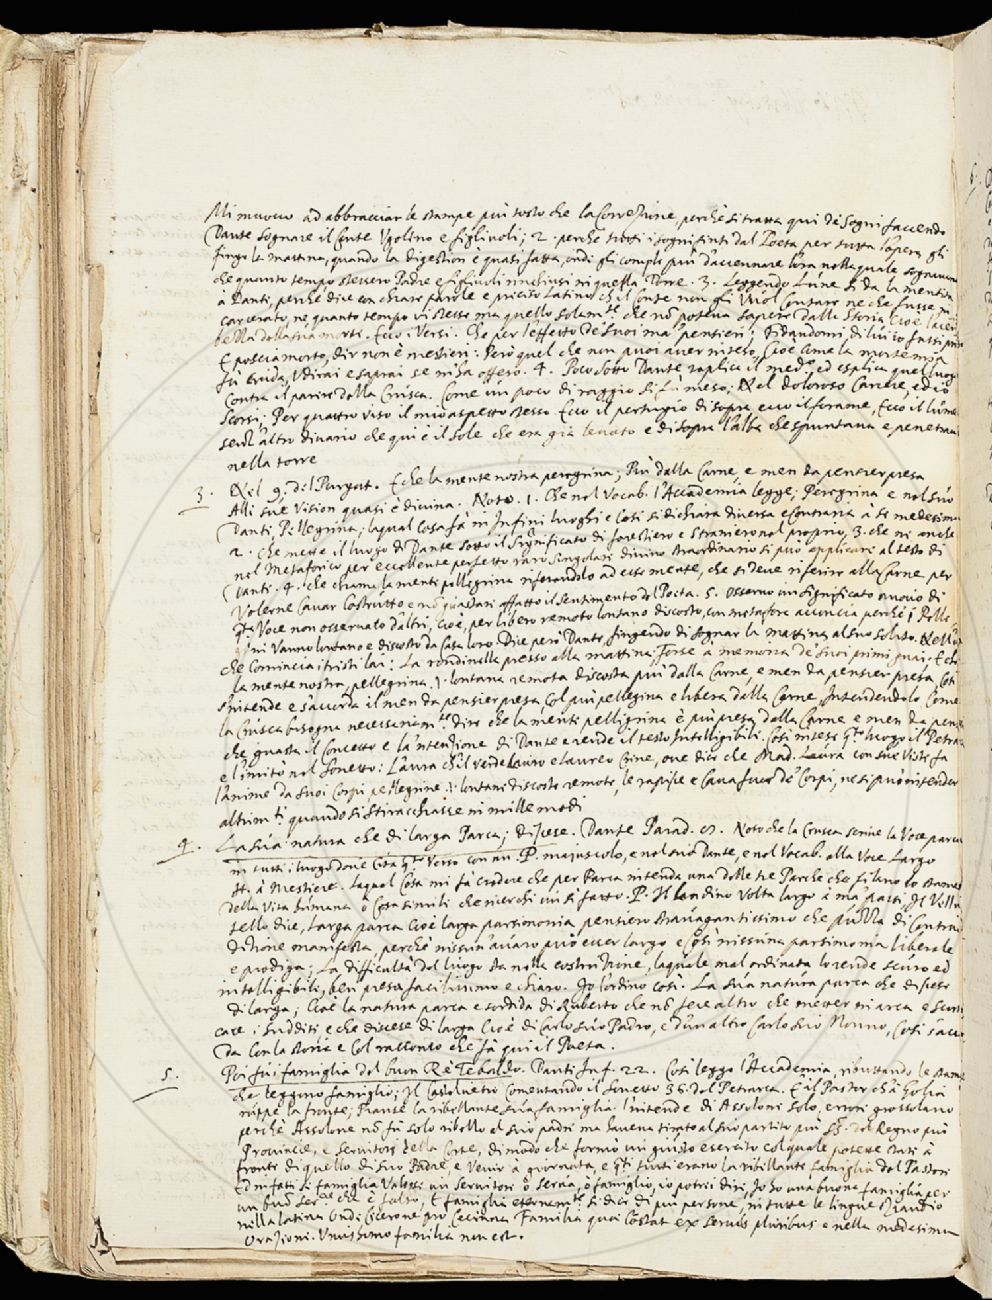 Mi muovo ad abbracciar le stampe più tosto che la Correzione, perché si tratta qui de sogni facendo
Dante sognare il Conte Ugolino e figliuoli; 2. perché tutti i sogni finti dal Poeta per tutta l'opera gli
finge la mattina, quando la digestion è quasi fatta, ondi gli compli più d'accennare l'ora nella quale sognavano
che quanto tempo stessero Padre e figliuoli rinchiusi in quella Torre. 3. Leggendo Lune si da la mentita
à Danti, perché dice con chiare parole e preciso Latino ch'il Conte non gli vuol contare ne che fusse in
carcerato, ne quanto tempo vi stesse ma quello solamte che nõ poteva sapere dalle Storie Cioè
della sua morte. Ecco i Versi. Che per l'effetto de suoi ma' pensieri; fidandomi di lui io fussi preso
E poscia morto, dir non è mestieri; Però quel che non puoi aver inteso, Cioè come la morte mia
fù cruda, Udirai e saprai se m'ha offeso. 4. Poco sotto Dante replica il medo ed esplica quel luogo
Contra il parire della Crusca. Come un poco di raggio si fu messo; Nel doloroso Carcere, ed io
Scorsi; Per quattro visi il mio aspetto stesso. Ecco il pertugio di sopra ecco il forame, Ecco il lume
senz'altro divario che qui è il sole che era già levato e di sopra l'alba che spuntava e penetrava
nella torre
3. Nel 9. del Purgat. E che la mente nostra peregrina; Più dalla Carne e men da pensier presa
Alli sue Vision quasi è divina. Noto. 1. Che nel Vocab. l'Accademia legge; Peregrina e nel suo
Danti, Pellegrina; laqual cosa fà in Infini luoghi e Così si dichiara diversa e Contraria à se medesima
2. che mette il luogo di Dante sotto il significato di forestiero e straniero nel proprio, 3. che ne anche
nel Metaforico per eccellente perfetto raro singolare divino straordinario si può applicari al testo di
Danti. 4. che chiama la menti pellegrina riferendolo ad essa mente, che si deve riferire alla Carne per
Volerne Cavar Costrutto e nõ guastari affatto il sentimento del Poeta. 5. Osservo un significato nuovo di
qta Voce non osservato d'altri, Cioè, per libero remoto lontano discosto, con metafora acconcia perché i Pelle
grini Vanno lontano e discosto da Casa loro. Dice però Dante, fingendo di sognar la mattina al suo solito. Nell'ora
che Comincia i tristi lai; La rondinella presso alla mattina; Forse a memoria de suoi primi guai; E che
la mente nostra pellegrina. i. lontana remota discosta più dalla Carne, e men da pensier presa, Così
s'intende e s'accorda il men da pensier presa Col più pellegrina e libera dalla Carne, Intendendolo Come
la Crusca bisogna necessariamte dire che la menti pellegrina è più presa dalla Carne e men da pensier
che guasta il Concetto e la'ntenzione di Dante e rende il testo Intelligibili. Così intese qto luogo il Petrarca
e l'imitò nel sonetto: L'aura ch'il verde lauro e l'aureo Crine, ove dice che Mad. Laura con sue viste fa
l'anime da suoi Corpi pellegrine. i. lontani discoste remote, le rapisse e Cava fuor de Corpi, ne si può intender
altrimti quando si Stiracchiasse in mille modi
4. La sua natura che di larga Parca; Discese. Dante Parad. 8. Noto che la Crusca scrive la Voce parca
in tutti i luoghi dov'è Cita qto Verso con un P. maiuscolo, e nel suo Dante, e nel Vocab. alla Voce Largo
st. à Mestiere. laqual Cosa mi fà credere che per Parca intenda una delle tre Parche che filano lo stame
della Vita humana, ò Cosa simili che merchi un sì fatto. P. Il Landino Volta largo è ma parca, Il Vellu
tello dice, larga parca cioè larga parsimonia pensiero stravagantissimo che puzza di Contra
dizione manifesta, perché nissun avaro può esser largo e Così nissuna parsimonia liberale
e prodiga; La difficultà del luogo sta nella costruzione, laquale mal ordinata lo rende scuro ed
intelligibili, ben presa facilissimo e chiaro. Io l'ordino così. La sua natura parca che discese
di larga; Cioè la natura parca e sordida di Ruberto che nõ fece altro che metter in arca e scor
care i sudditi e che discese di larga Cioè di Carlo suo Padre, e d'un altro Carlo suo Nonno, Così s'accor
da Con la storia e Col racconto che fà qui il Poeta.
5. Poi fui famiglia del buon Rè Tebaldo. Danti Inf. 22. Così legge l'Accademia, ributtando le stampe
che leggono famiglio; Il Castelvetro Comentando il sonetto 36. del Petrarca. E il Pastor ch'à Golia
ruppe la fronte; Pianse la ribellante sua famiglia. l'intende di Assoloni solo, errori grossolano
perché Assolone nõ fù solo ribello al suo padri ma haveva tirato al suo partito più gti del Regno più
Provincie, e servitori della Corte, di modo che formò un giusto esercito col quale potesse stari à
fronte di quello di suo Padre, e Venir à giornata, e qti tutti erano la ribellante famiglia del Pastori
Ed infati se famiglia Valesse un servitori ò serva, ò famiglio, io potrei diri, Io ho una buona famiglia per
un buõ serre che è falso, E famiglia eternamte si dice di più persone, in tutte le lingue eziandio
nella latina Ondi Cicerone pro Cecinna Familia quae Costat ex servis pluribus e nella medesima
Orazioni. Unus homo familia non est.